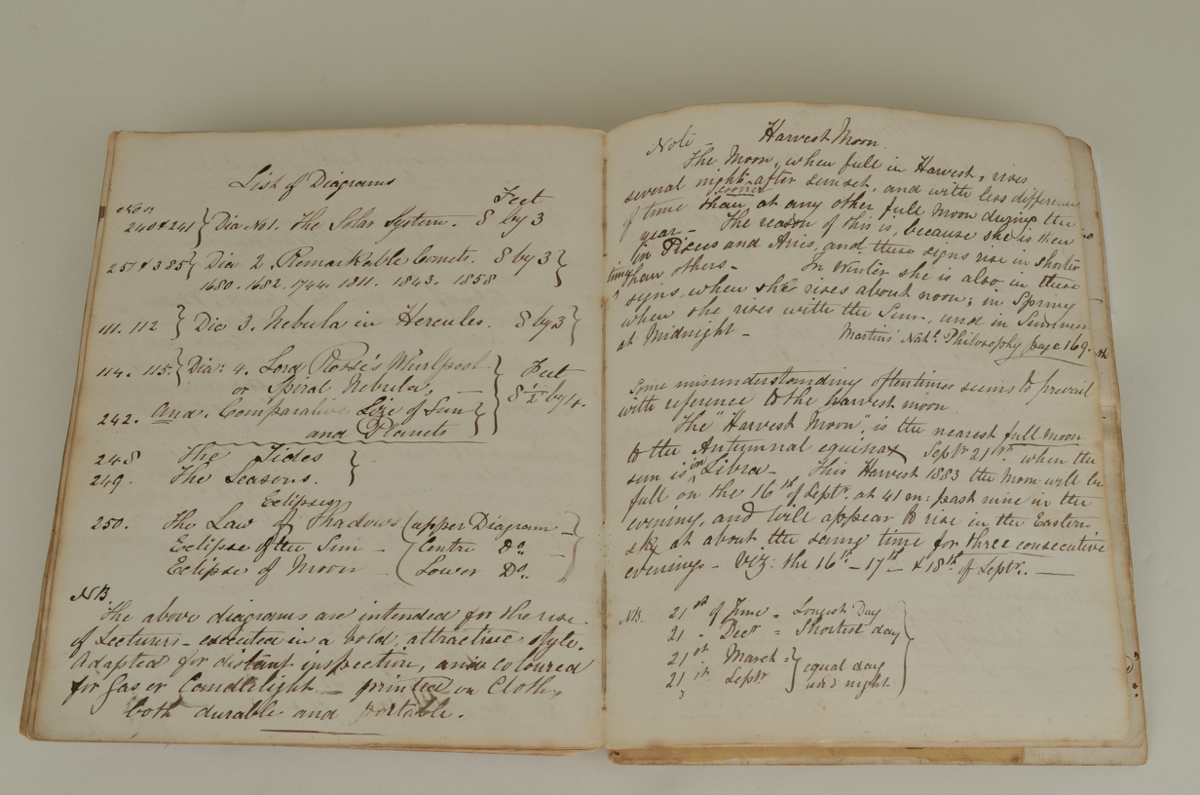 List of Diagrams
Feet
Nos.
240 & 241 } Dia No 1. The Solar System. 8 by 3
257 & 385 } Dia 2. Remarkable Comets. 8 by 3 }
1680. 1682. 1744. 1811. 1843. 1858
111. 112 } Dia 3. Nebula in Hercules. 8 by 3 }
114. 115. } Dia: 4. Lord Rosse's Whirlpool
or Spiral Nebula, — } Feet
242. And. Comparative Size of Sun } 8 1/2 by 4.
and Planets
248 The Tides }
249. The Seasons.
Eclipses
250. The Law of Shadows (upper Diagram
Eclipse of the Sun — (Centre Do.
Eclipse of Moon (Lower Do.
NB.
The above diagrams are intended for the use
of Lecturers — executed in a bold, attractive style.
Adapted for distant inspection, and coloured
for Gas or Candlelight — printed on Cloth,
both durable and portable.
Note — Harvest Moon.
The Moon, when full in Harvest, rises
several nights after sunset, and with less difference
sooner
of time than, at any other full Moon during the
year — The reason of this is, because she is then
in Pisces and Aries, and these signs rise in shorter
time than others — In Winter she is also in these
signs, when she rises about noon; in Spring
when she rises with the Sun, and in Summer
at Midnight —
Martin's Natl. Philosophy page 169.
Some misunderstanding oftentimes seems to prevail
with reference to the harvest moon
The "Harvest Moon", is the nearest full moon
to the Autumnal equinox Septr 21st when the
sun is in Libra — This Harvest 1883 the Moon will be
full on the 16th of Septr. at 41 m: past nine in the
evening, and will appear to rise in the Eastern
sky at about the same time for three consecutive
evenings — Viz: the 16th — 17th — & 18th of Septr. —
NB. 21st of June = Longest Day
21 " Decr = Shortest day
21st March = } equal day
21st Septr } and night